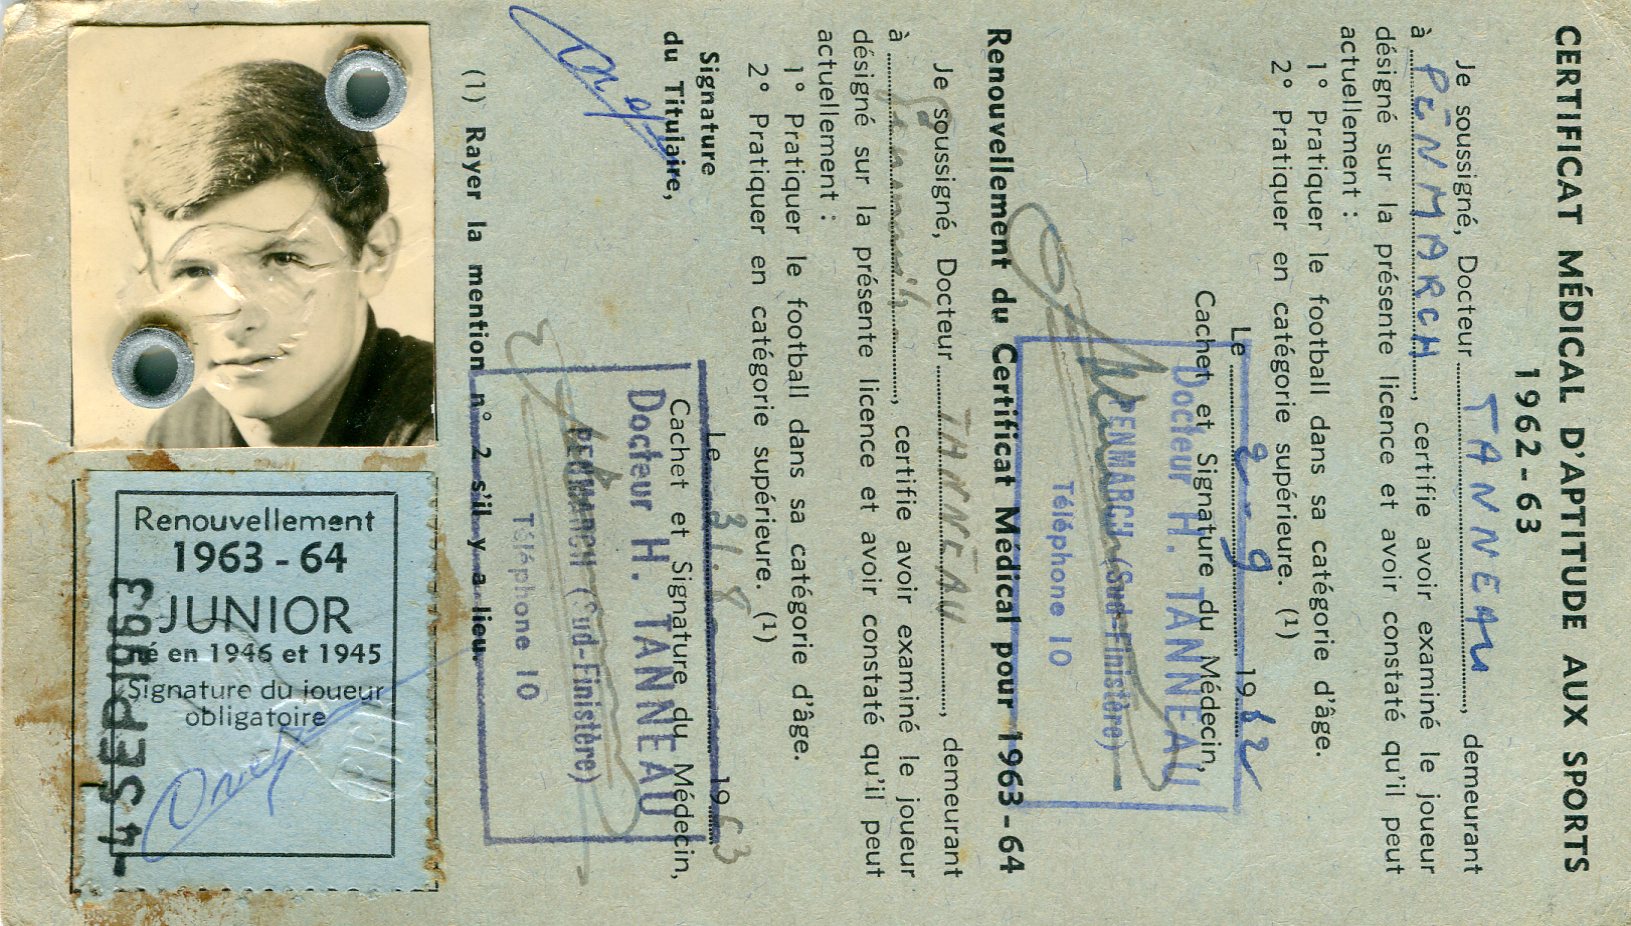 CERTIFICAT MÉDICAL D'APTITUDE AUX SPORTS
1962-63
Je soussigné, Docteur TANNEAU, demeurant
à PENMARCH, certifie avoir examiné le joueur
désigné sur la présente licence et avoir constaté qu'il peut
actuellement :
1° Pratiquer le football dans sa catégorie d'âge.
2° Pratiquer en catégorie supérieure. (1)
Le 2-9 1962
Cachet et Signature du Médecin,
Docteur H. TANNEAU
PENMARCH (Sud-Finistère)
Téléphone 10
Renouvellement du Certificat Médical pour 1963-64
Je soussigné, Docteur TANNEAU, demeurant
à, certifie avoir examiné le joueur
désigné sur la présente licence et avoir constaté qu'il peut
actuellement :
1° Pratiquer le football dans sa catégorie d'âge.
2° Pratiquer en catégorie supérieure. (1)
Le 31.8 1963
Signature
du Titulaire,
Cachet et Signature du Médecin,
Docteur H. TANNEAU
PENMARCH (Sud-Finistère)
Téléphone 10
(1) Rayer la mention n° 2 s'il y a lieu.
Renouvellement
1963-64
JUNIOR
né en 1946 et 1945
Signature du joueur
obligatoire
-4 SEP 1963